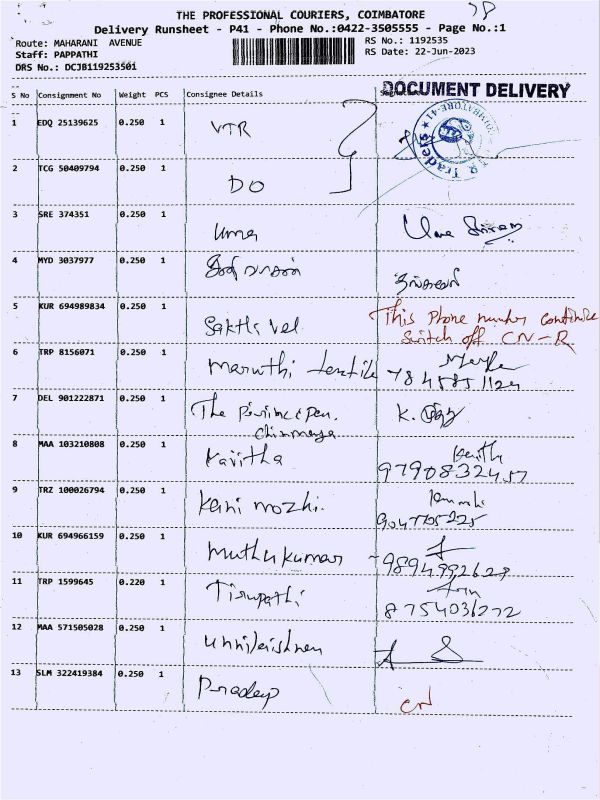 THE PROFESSIONAL COURIERS, COIMBATORE
Delivery Runsheet - P41 - Phone No.:0422-3505555 - Page No.:1
Route: MAHARANI AVENUE
RS No.: 1192535
Staff: PAPPATHI
RS Date: 22-Jun-2023
DRS No.: DCJB119253501
DOCUMENT DELIVERY
S No Consignment No Weight PCS Consignee Details
1 EDQ 25139625 0.250 1 VTR
2 TCG 50409794 0.250 1 DO
3 SRE 374351 0.250 1 Uma
4 MYD 3037977 0.250 1
5 KUR 694989834 0.250 1 Sakthi vel This Phone number continue
Switch off CN-R
6 TRP 8156071 0.250 1 Maruthi textile
7 DEL 901222871 0.250 1 The
chinmaya
8 MAA 103210808 0.250 1 Kavitha
9790832457
9 TRZ 100026794 0.250 1 Kani mozhi.
10 KUR 694966159 0.250 1 Muthu kumar
11 TRP 1599645 0.220 1 Tirupathi
8754036272
12 MAA 571505028 0.250 1 Unnikrishnan
13 SLM 322419384 0.250 1 Pradeep CN